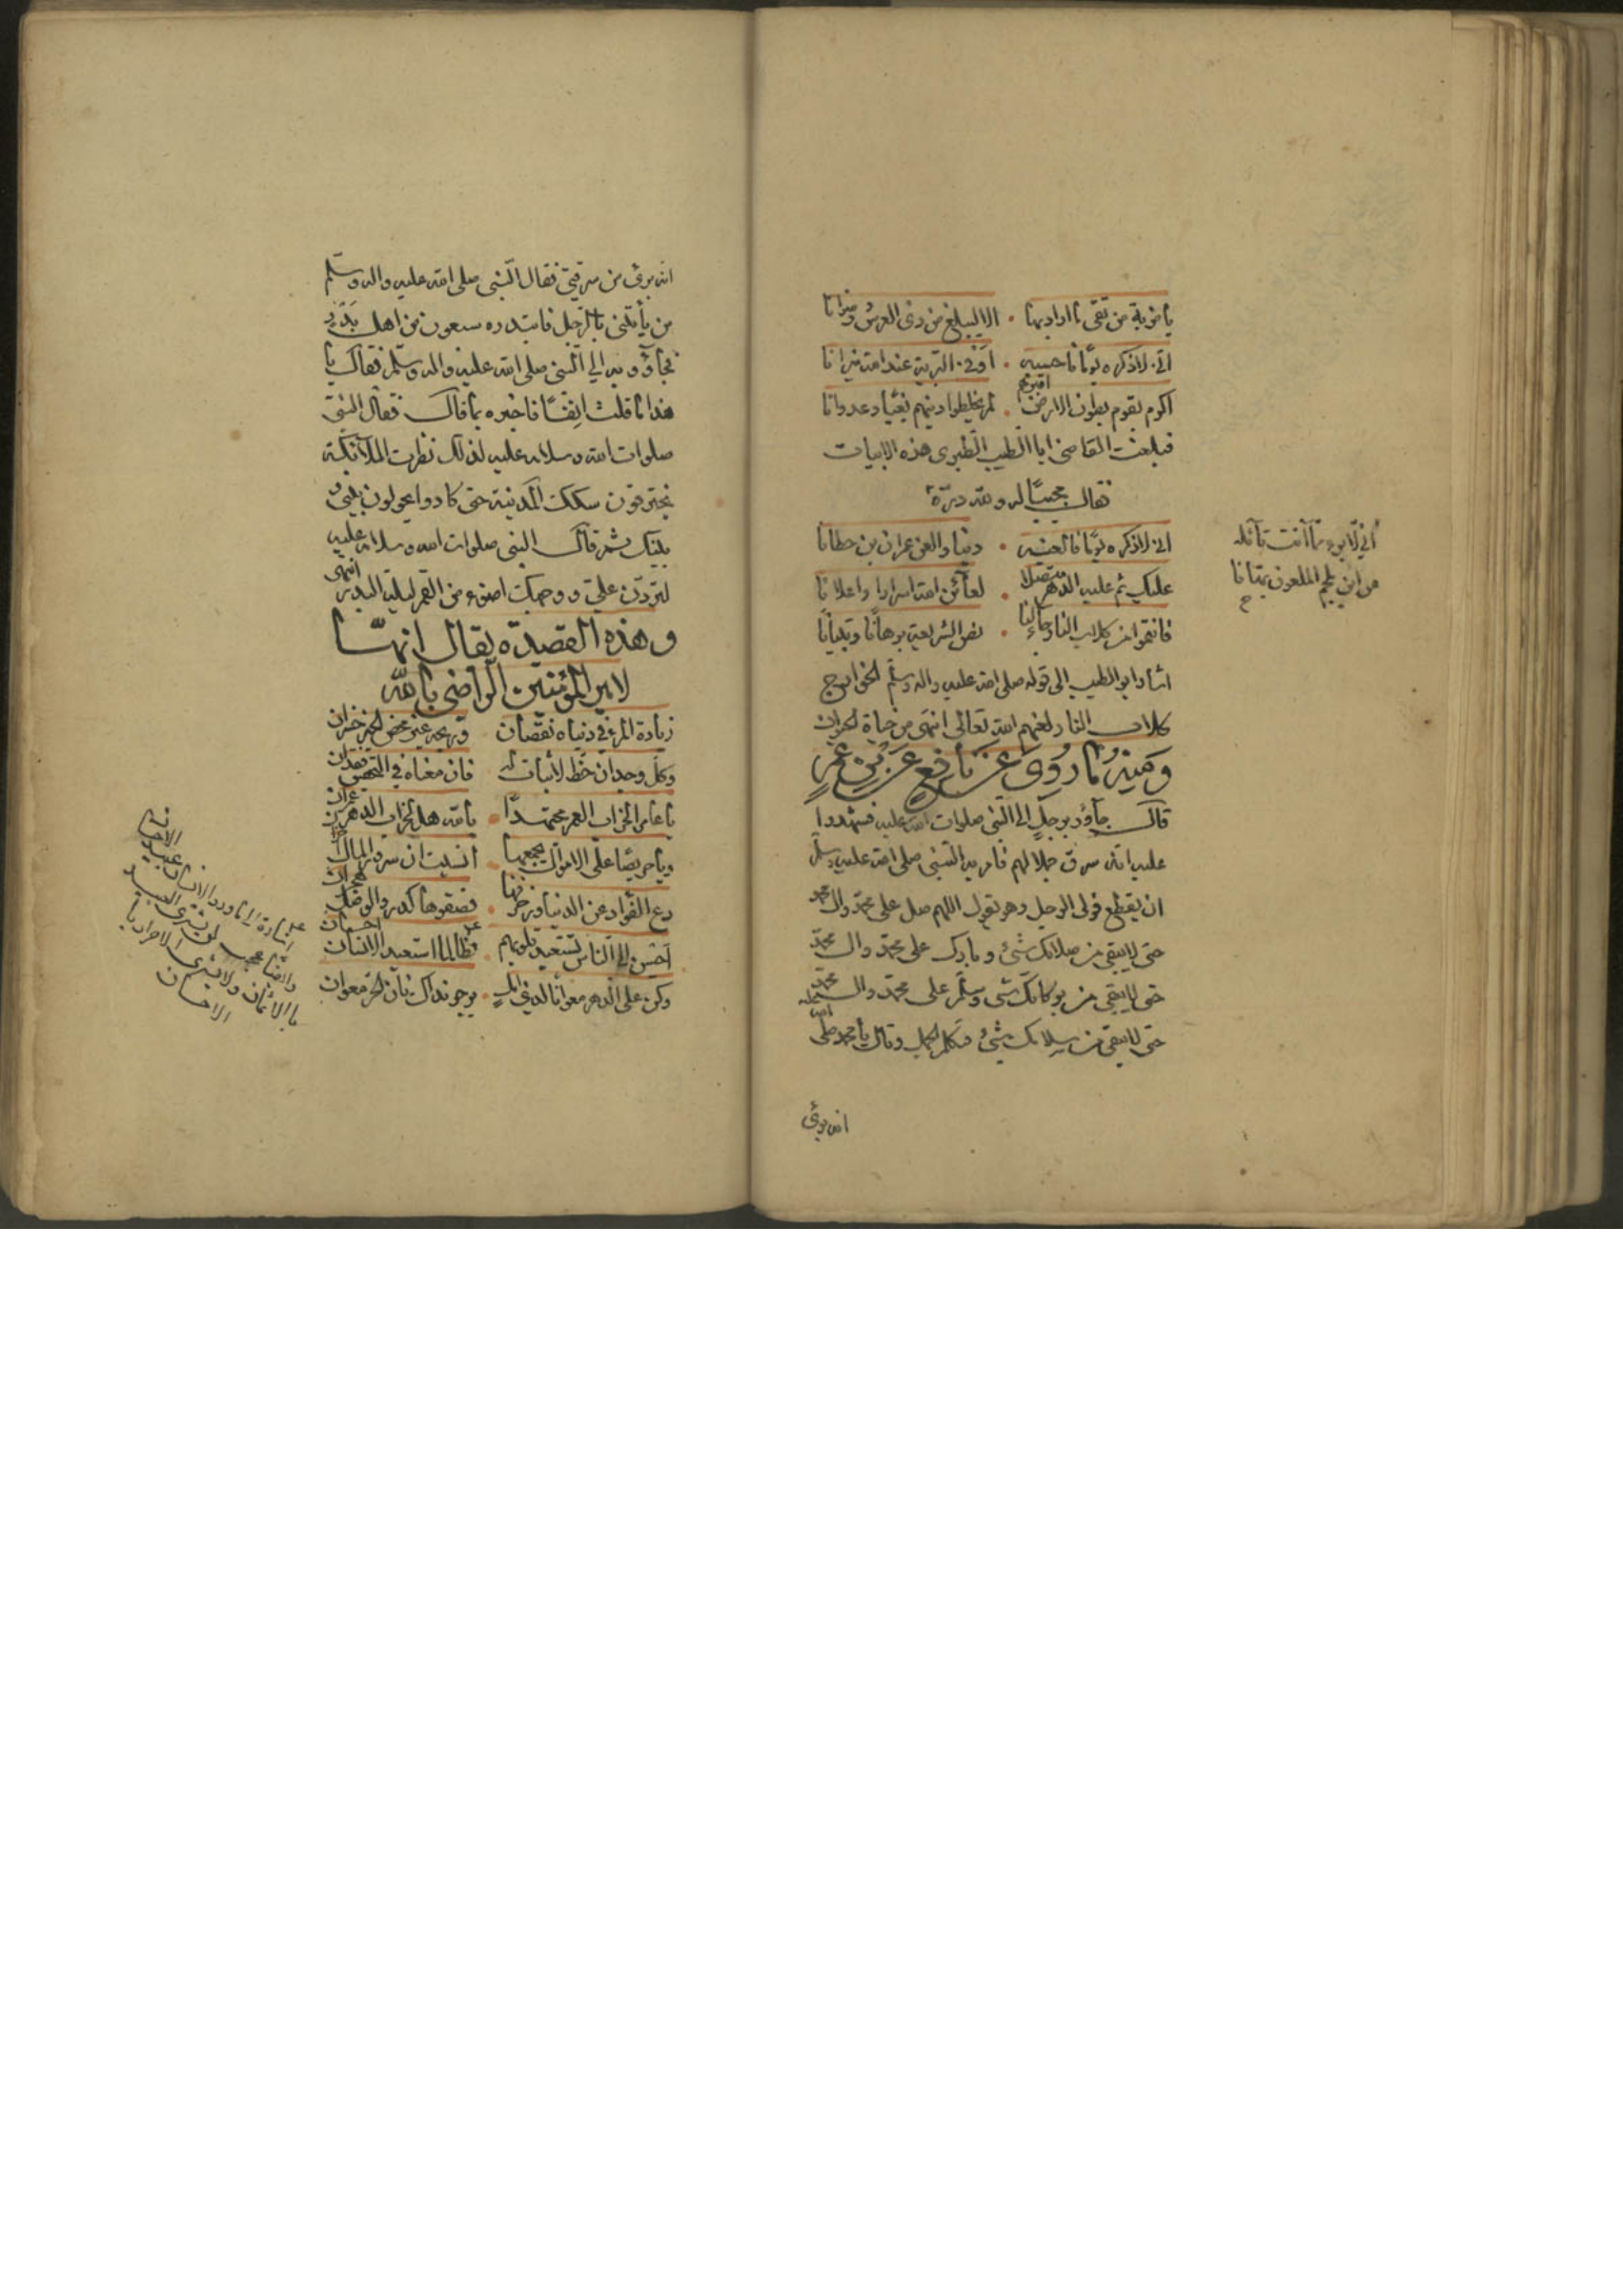 يا ضربة من تقي ما اراد بها • الا ليبلغ من ذي العرش رضوانا
اني لاذكره يوما فاحسبه • اوفى البرية عند الله ميزانا
اكرم بقوم بطون الارض اقبرهم • لم يخلطوا دينهم بغيا وعدوانا
فبلغت القاضي ابا الطيب الطبري هذه الابيات
فقال مجيبا له ولله درّه
اني لابرء مما انت قائله
من ابن ملجم الملعون بهتانا
اني لاذكره يوما فالعنه • دينا والعن عمران بن حطانا
عليك ثم عليه الدهر متصلا • لعائن الله اسرارا واعلانا
فانتموا من كلاب النار جاء لنا • نص الشريعة برهانا وتبيانا
اشار ابو الطيب الى قوله صلى الله عليه واله وسلم الخوارج
كلاب النار لعنهم الله تعالى انتهى من حياة الحيوان
ومنه ما روي عن نافع عن بن عمر
قال جاؤد برجل الى النبي صلوات الله عليه فشهدوا
عليه انه سرق جملا لهم فامر به النبي صلى الله عليه وسلم
ان يقطع فولى الرجل وهو يقول اللهم صل على محمد وال محمد
حتى لا يبقى من صلاتك شئ وبارك على محمد وال محمد
حتى لا يبقى من بركاتك شئ وسلم على محمد وال محمد
حتى لا يبقى من سلامك شئ فتكلم الجمل وقال يا محمد صلى الله عليه
انه بريئ
انه برئ من سرقتي فقال النبي صلى الله عليه واله وسلم
من يأتني بالرجل فابتدره سبعون من اهل بدر
فجاؤو به الى النبي صلى الله عليه واله وسلم فقال يا
هذا ما قلت انفا فاخبره بما قال فقال النبي
صلوات الله وسلامه عليه لذلك نظرت الملائكة
يخترقون سكك المدينة حتى كادوا يحولون بيني و
بينك ثم قال النبي صلوات الله وسلامه عليه
لتردّن عليّ ووجهك اضوء من القمر ليلة البدر انتهى
وهذه القصيدة يقال انها
لامير المؤمنين الراضي بالله
زيادة المرء في دنياه نقصان وربحه غير محض الخير خسران
وكل وجدان حظ لا ثبات له فان معناه في التحقيق فقدان
يا عامرا لخراب العمر مجتهدا • بالله هل لخراب الدهر عمران
ويا حريصا على الاموال يجمعها • انسيت ان سرور المال احزان
دع الفؤاد عن الدنيا وزخرفها • فصفوها كدر والوصل هجران
احسن الى الناس تستعبد قلوبهم • فطالما استعبد الانسان احسان
وكن على الدهر معوانا لذي امل • يرجو نداك فان الحر معوان
اشارة الى ما ورد الانسان عبيد الاحسان
وايضا عجبت لمن يشتري العبيد
بالاثمان ولا يشتري الاحرار با
الاحسان